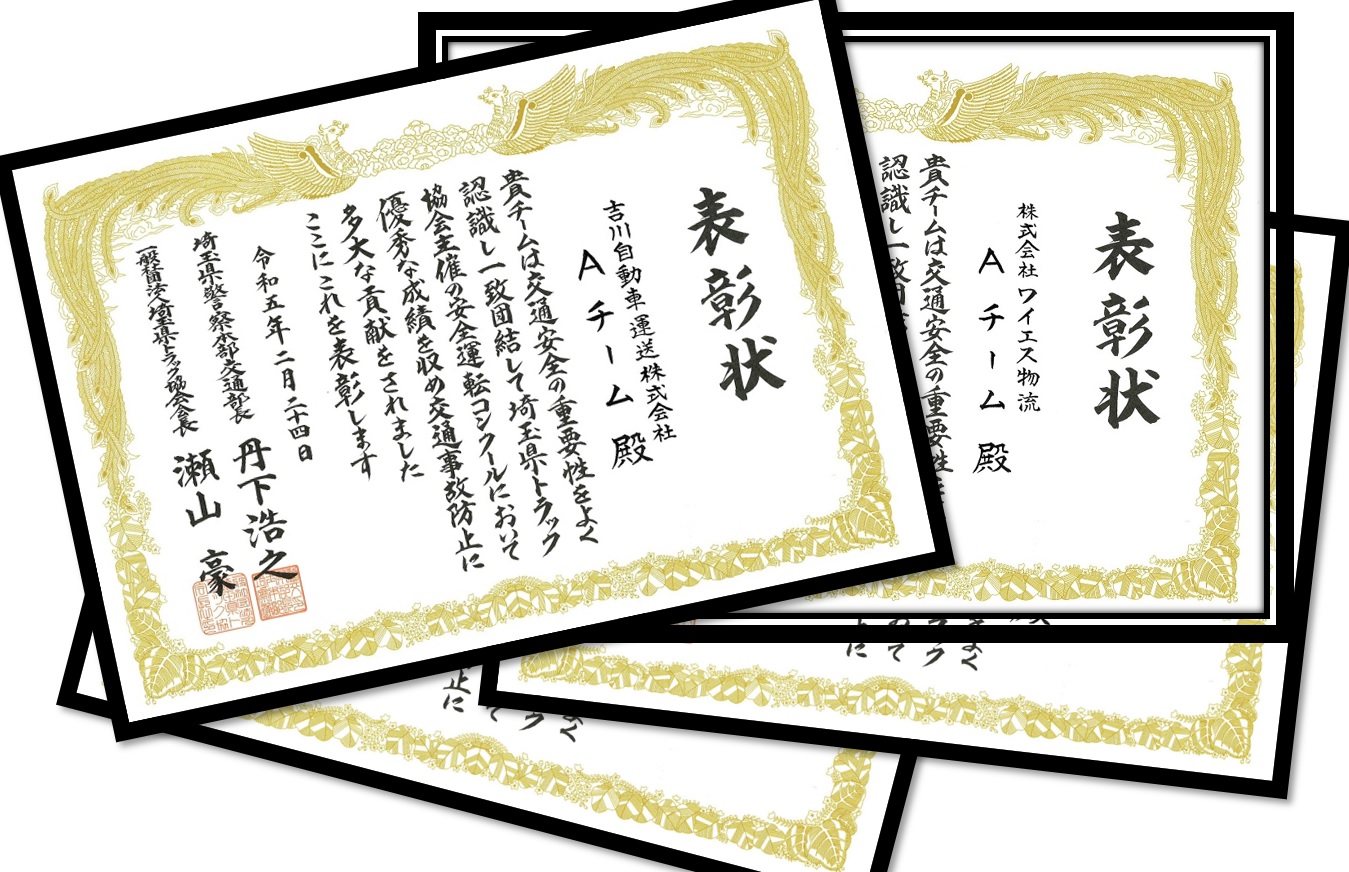 表彰状
吉川自動車運送株式会社
Aチーム 殿
貴チームは交通安全の重要性をよく
認識し一致団結して埼玉県トラック
協会主催の安全運転コンクールにおいて
優秀な成績を収め交通事故防止に
多大な貢献をされました
ここにこれを表彰します
令和五年二月二十四日
埼玉県警察本部交通部長 丹下浩之
一般社団法人埼玉県トラック協会会長 瀬山 豪
表彰状
株式会社ワイエス物流
Aチーム 殿
貴チームは交通安全の重要性を
認識し一致団
よく
ック
いて
止に